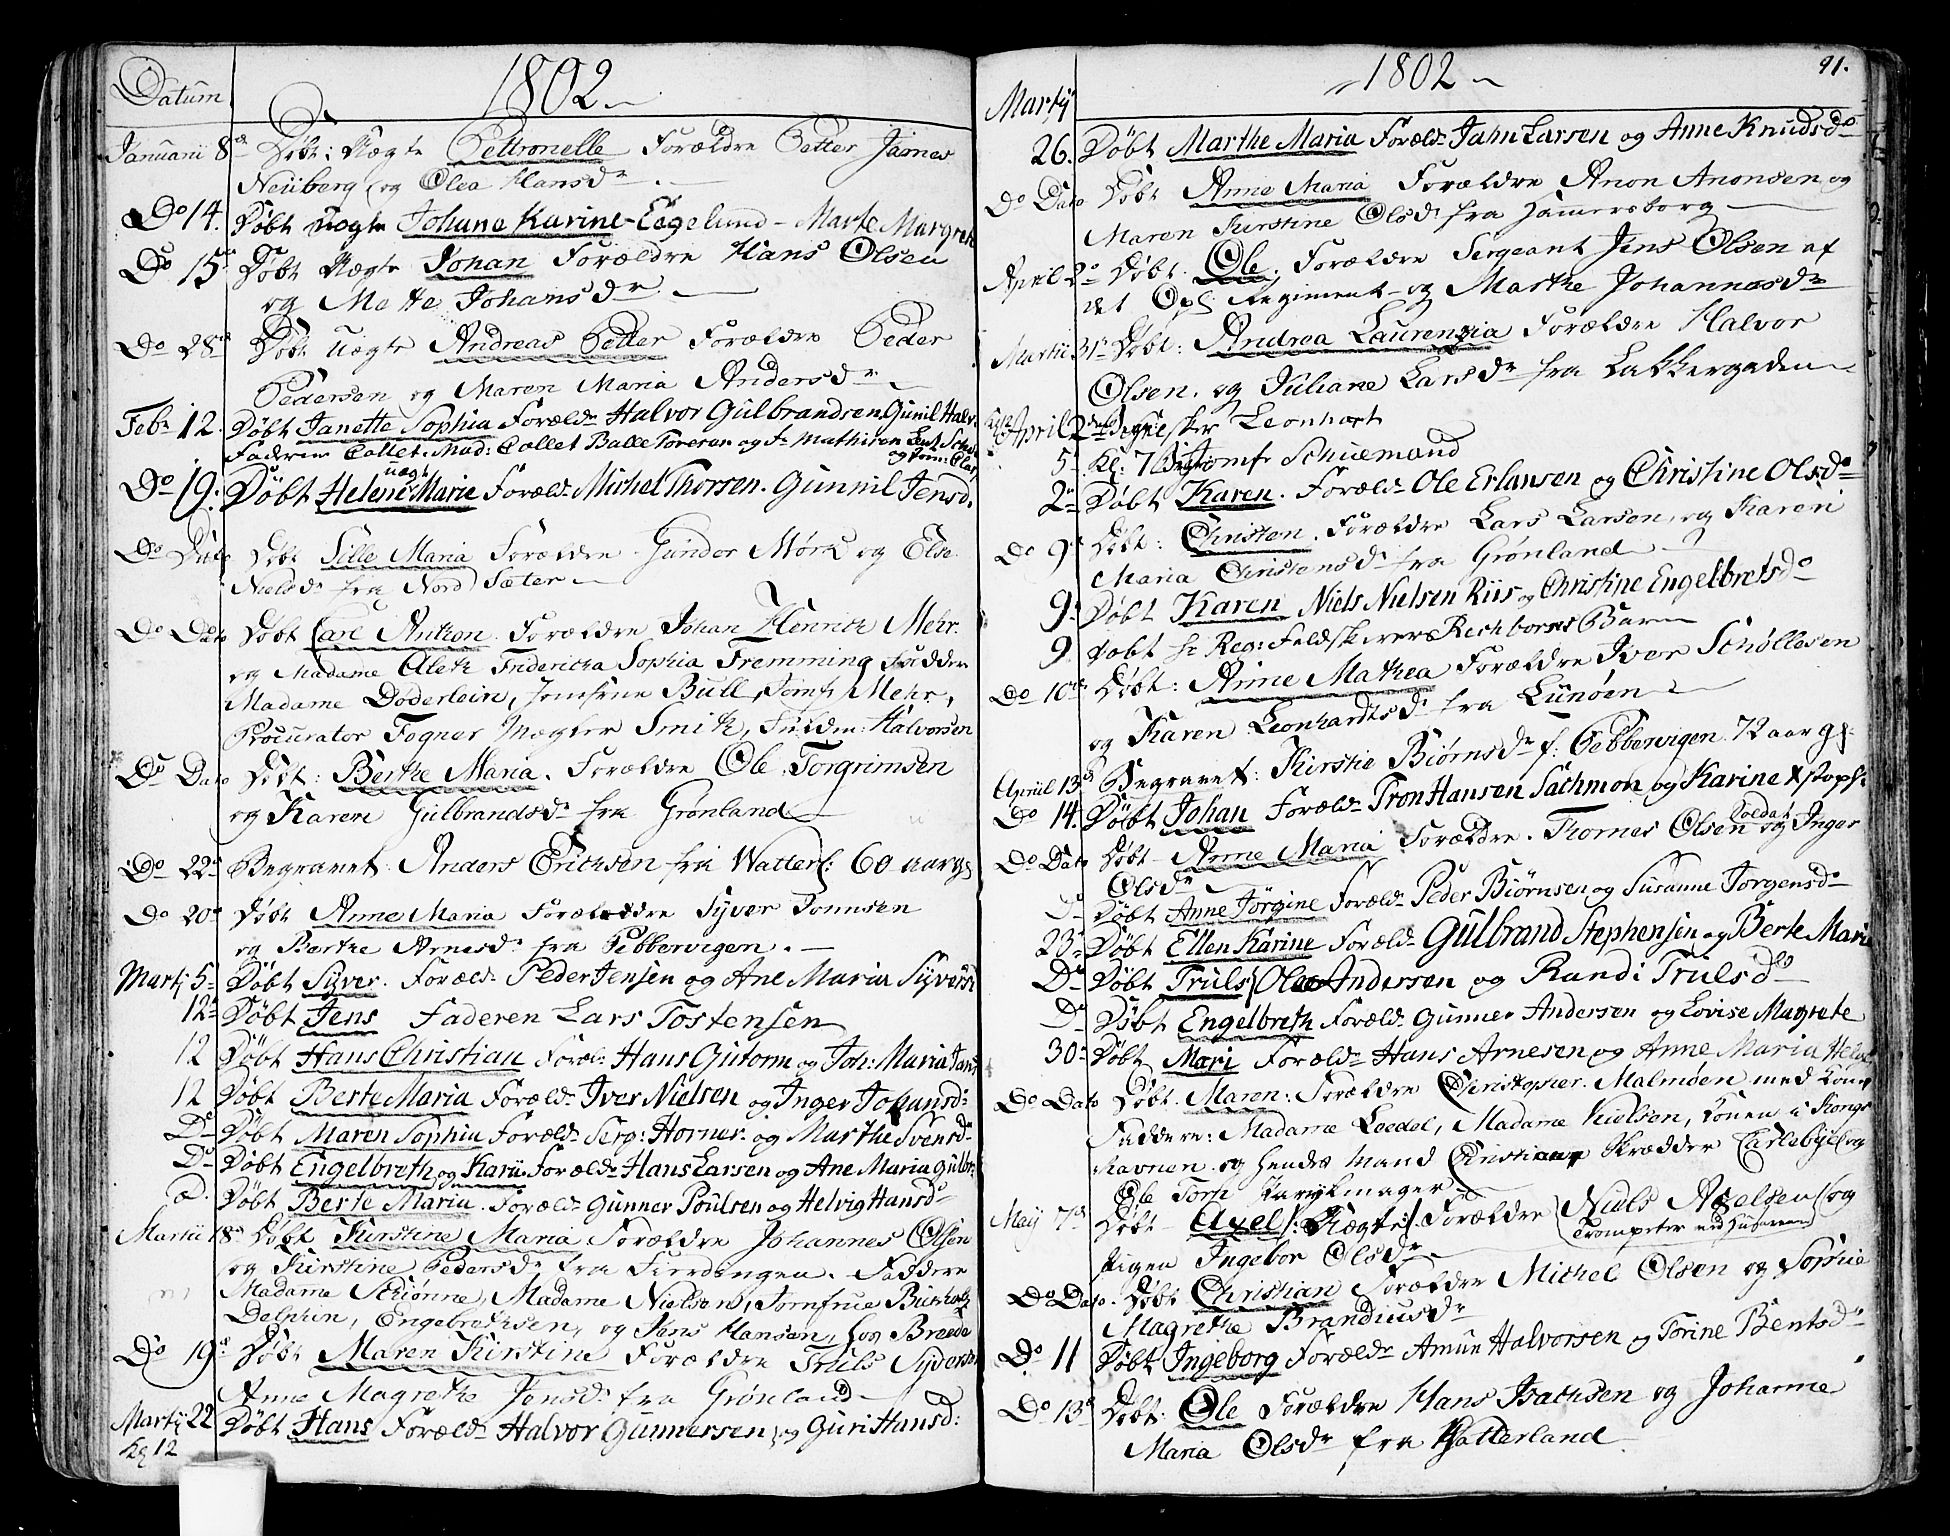 Datum 1802
Januarii 8de Döbt: Uægte Pettronelle Forældre Petter James
Neuberg og Olea Hansdr
Do 14. Döbt uægte Johane Karine Egelund - Marte Margrete
Do 15de Döbt Uægte Johan Forældre Hans Olsen
og Mette Johansdr
Do 28de Döbt Uægte Andreas Petter Forældre Peder
Pedersen og Maren Maria Andersdr
Febr 12. Döbt Janette Sophia Forældr Halvor Gulbrandsen, Gunil Halv
Faderne Collet. Mad: Collet Balle Toresen og Fr Mathisen
og Jom: Clas
Do 19. Döbt Helene Marie uægt Foræld. Michel Thorsen. Gunnil Jensd.
Do Dato Döbt Sille Maria Forældre Gunder Mørk og Else
Nielsdr fra Nord Sæter
Do Dato Döbt Carl Anthon Forældre Johan Henrich Mehr.
og Madame Aleth Friderica Sophia Fremming Faddere
Madame Döderlein, Jomfrue Bull, Jomf. Mehr,
Procurator Fogner Mægler Smith, Halvorsen
Do Dato Döbt: Berthe Maria. Forældre Ole Torgrimsen
og Karen Gulbrandsdr fra Grønland
Do 22de Begravet. Anders Erichsen fra Watterl: 60 aar gl
Do 20de Döbt Anne Maria Forældre Syver Tonnsen
og Berthe Arnesdr fra Pebbervigen.
Martij 5de Döbt Syver. Foræld. Peder Jensen og Ane Maria Syversd
12te Döbt Jens Faderen Lars Tostensen
12 Döbt Hans Christian Foræl: Hans Gutorm og Joh: Maria Jans
12 Döbt Berte Maria Foræld. Iver Nielsen og Inger Johansd.
Do Döbt Maren Sophia Foræld. Serg: Horner og Marthe Svensd.
Do Döbt Engelbreth og Karii Foræld. Hans Larsen og Ane Maria Gulbr:
d. Döbt Berte Maria. Foræld. Gunner Poulsen og Helvig Hansd.
Martii 18de Döbt Kirstine Maria Forældre Johannes Olsen
og Kirstine Pedersdr fra Fierdingen. Faddere
Madame Schiønne, Madame Nielsen, Jomfrue Buchholt
Delphin, Engebrethsen, og Jens Hansen, hos Breede
Do 19de Döbt Maren Kirstine Forældre Truls Syversen
Anne Magrethe Jensdr fra Grønland
Martij 22 Döbt Hans Foræld. Halvor Gunnersen og Guri Hansd:
Kl 12
1802 91.
Martij
26. Döbt Marthe Maria Foræld. Jahn Larsen og Anne Knudsdr
Do Dato Döbt Anne Maria Forældre Anon Anonsen og
Maren Kirstine Olsdr fra Hamersborg
April 2de Döbt. Ole. Forældre Sergeant Jens Olsen af
det Opl: Regiment og Marthe Johannesdr
Martii 31te Döbt: Andrea Laurenzia Forældre Halvor
Olsen. og Juliane Larsdr fra Lakkergaden
April 2den Leonhart
5. Kl: 7 Jomfr Schuemand
2de Döbt Karen. Foræld. Ole Erlansen og Christine Olsdr
Do 9de Döbt: Christen. Forældre Lars Larsen, og Karen
Maria Christensdr fra Grønland
9. Döbt Karen Niels Nielsen Riis og Christine Engelbretsdr
9. Döbt Hr Reg: Feldskerer Rechborns Barn
Do 10de Döbt: Anne Mathea Forældre Iver Schøllesen
og Karen Leonhardtsdr fra Lunøen
April 13de Begravet: Kirstie Biørnsdr f: Pebbervigen 72 aar gl.
Do 14. Döbt Johan Foræld. Tron Hansen Sachmon og Karine
Do Dato Döbt Anne Maria Forældre. Thomes Olsen Soldat og Inger
Olsdr
D. Döbt Anne Jörgine Foræld. Peder Biørnsen og Susanne Jorgensd.
23de Döbt Ellen Karine Foræld. Gulbrand Stephensen og Berte Marie
D. Döbt Truls Ole Andersen og Randi Trulsdr
D. Döbt Engelbreth Foræld. Gunner Andersen og Lovise Magrete
30de Döbt Mari Foræld. Hans Arnesen og Anne Maria Helv
Do Dato Döbt. Maren: Forældre Christopher Malmøen med Kone
Faddere: Madame Loedel, Madame Nielsen, Konen i Kongs
Havnen og hendes Mand Christian Skrædder Carlebye og
Ole Torp Parykmager
Maij 7de Döbt - Axel /: Uægte :/ Forældre Niels Axelsen og
Trompeter ved Husaren
Pigen Ingebor Olsdr
Do Dato. Döbt Christian Forældre Michel Olsen og Sophie
Magrethe Brandiusdr
Do 11 Döbt Ingeborg Foræld. Amun Halvorsen og Torine Bentsdr
Do 13de Döbt: Ole Forældre Hans Isachsen og Johanne
Maria Olsdr fra Watterland